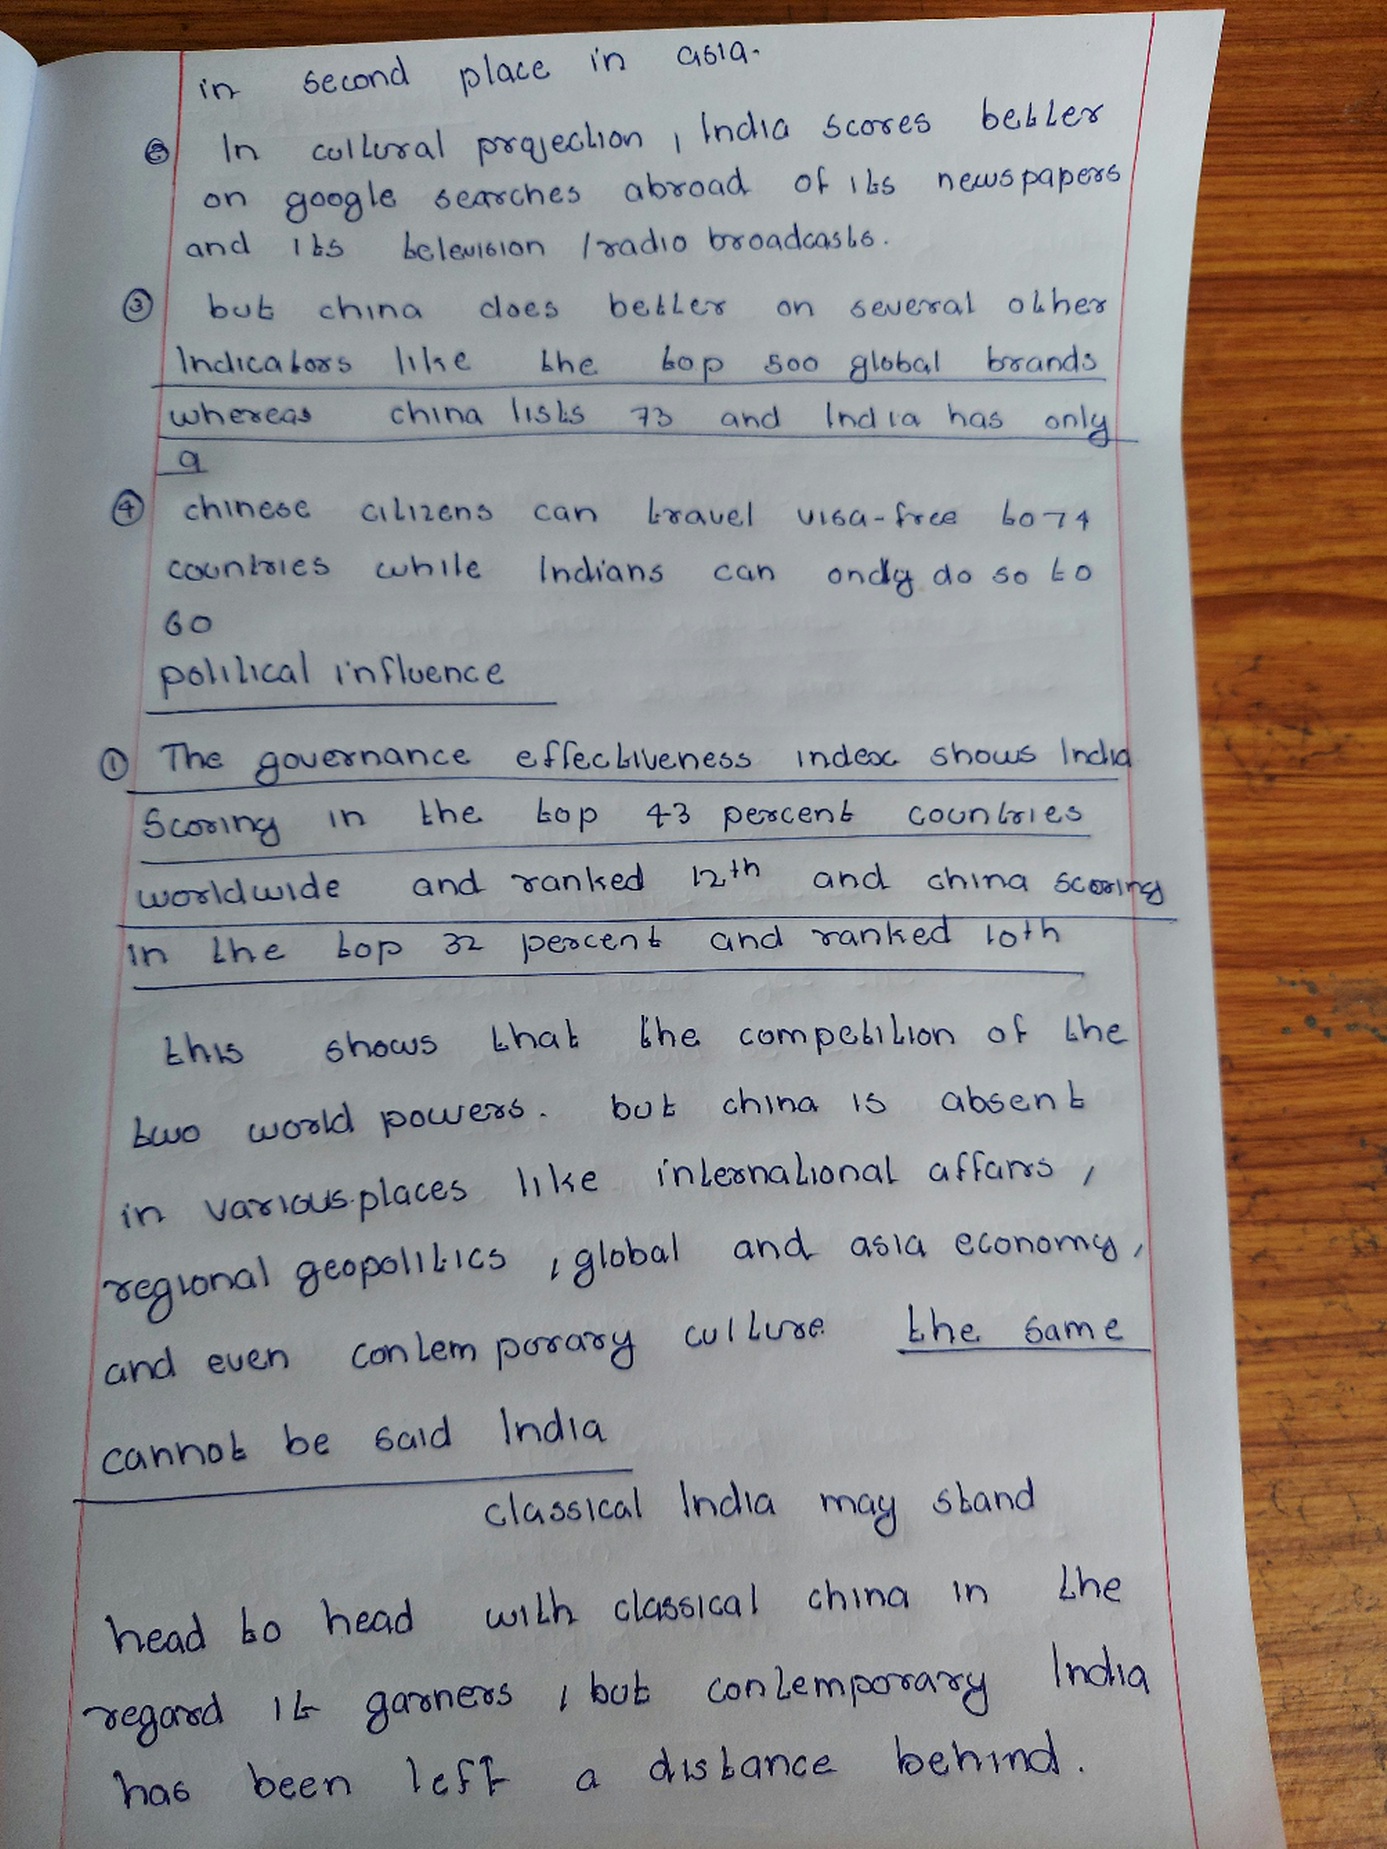 in second place in asia.
② In cultural projection, India scores better
on google searches abroad of its newspapers
and its television / radio broadcasts.
③ but china does better on several other
Indicators like the top 500 global brands
whereas china lists 73 and India has only
9
④ chinese citizens can travel visa-free to 74
countries while Indians can ondy do so to
60
political influence
① The governance effectiveness index shows India
Scoring in the top 43 percent countries
worldwide and ranked 12th and china scoring
in the top 32 percent and ranked 10th
this shows that the competition of the
two world powers. but china is absent
in various places like international affairs,
regional geopolitics, global and asia economy,
and even contemporary culture. the same
cannot be said India
classical India may stand
head to head with classical china in the
regard it garners, but contemporary India
has been left a distance behind.